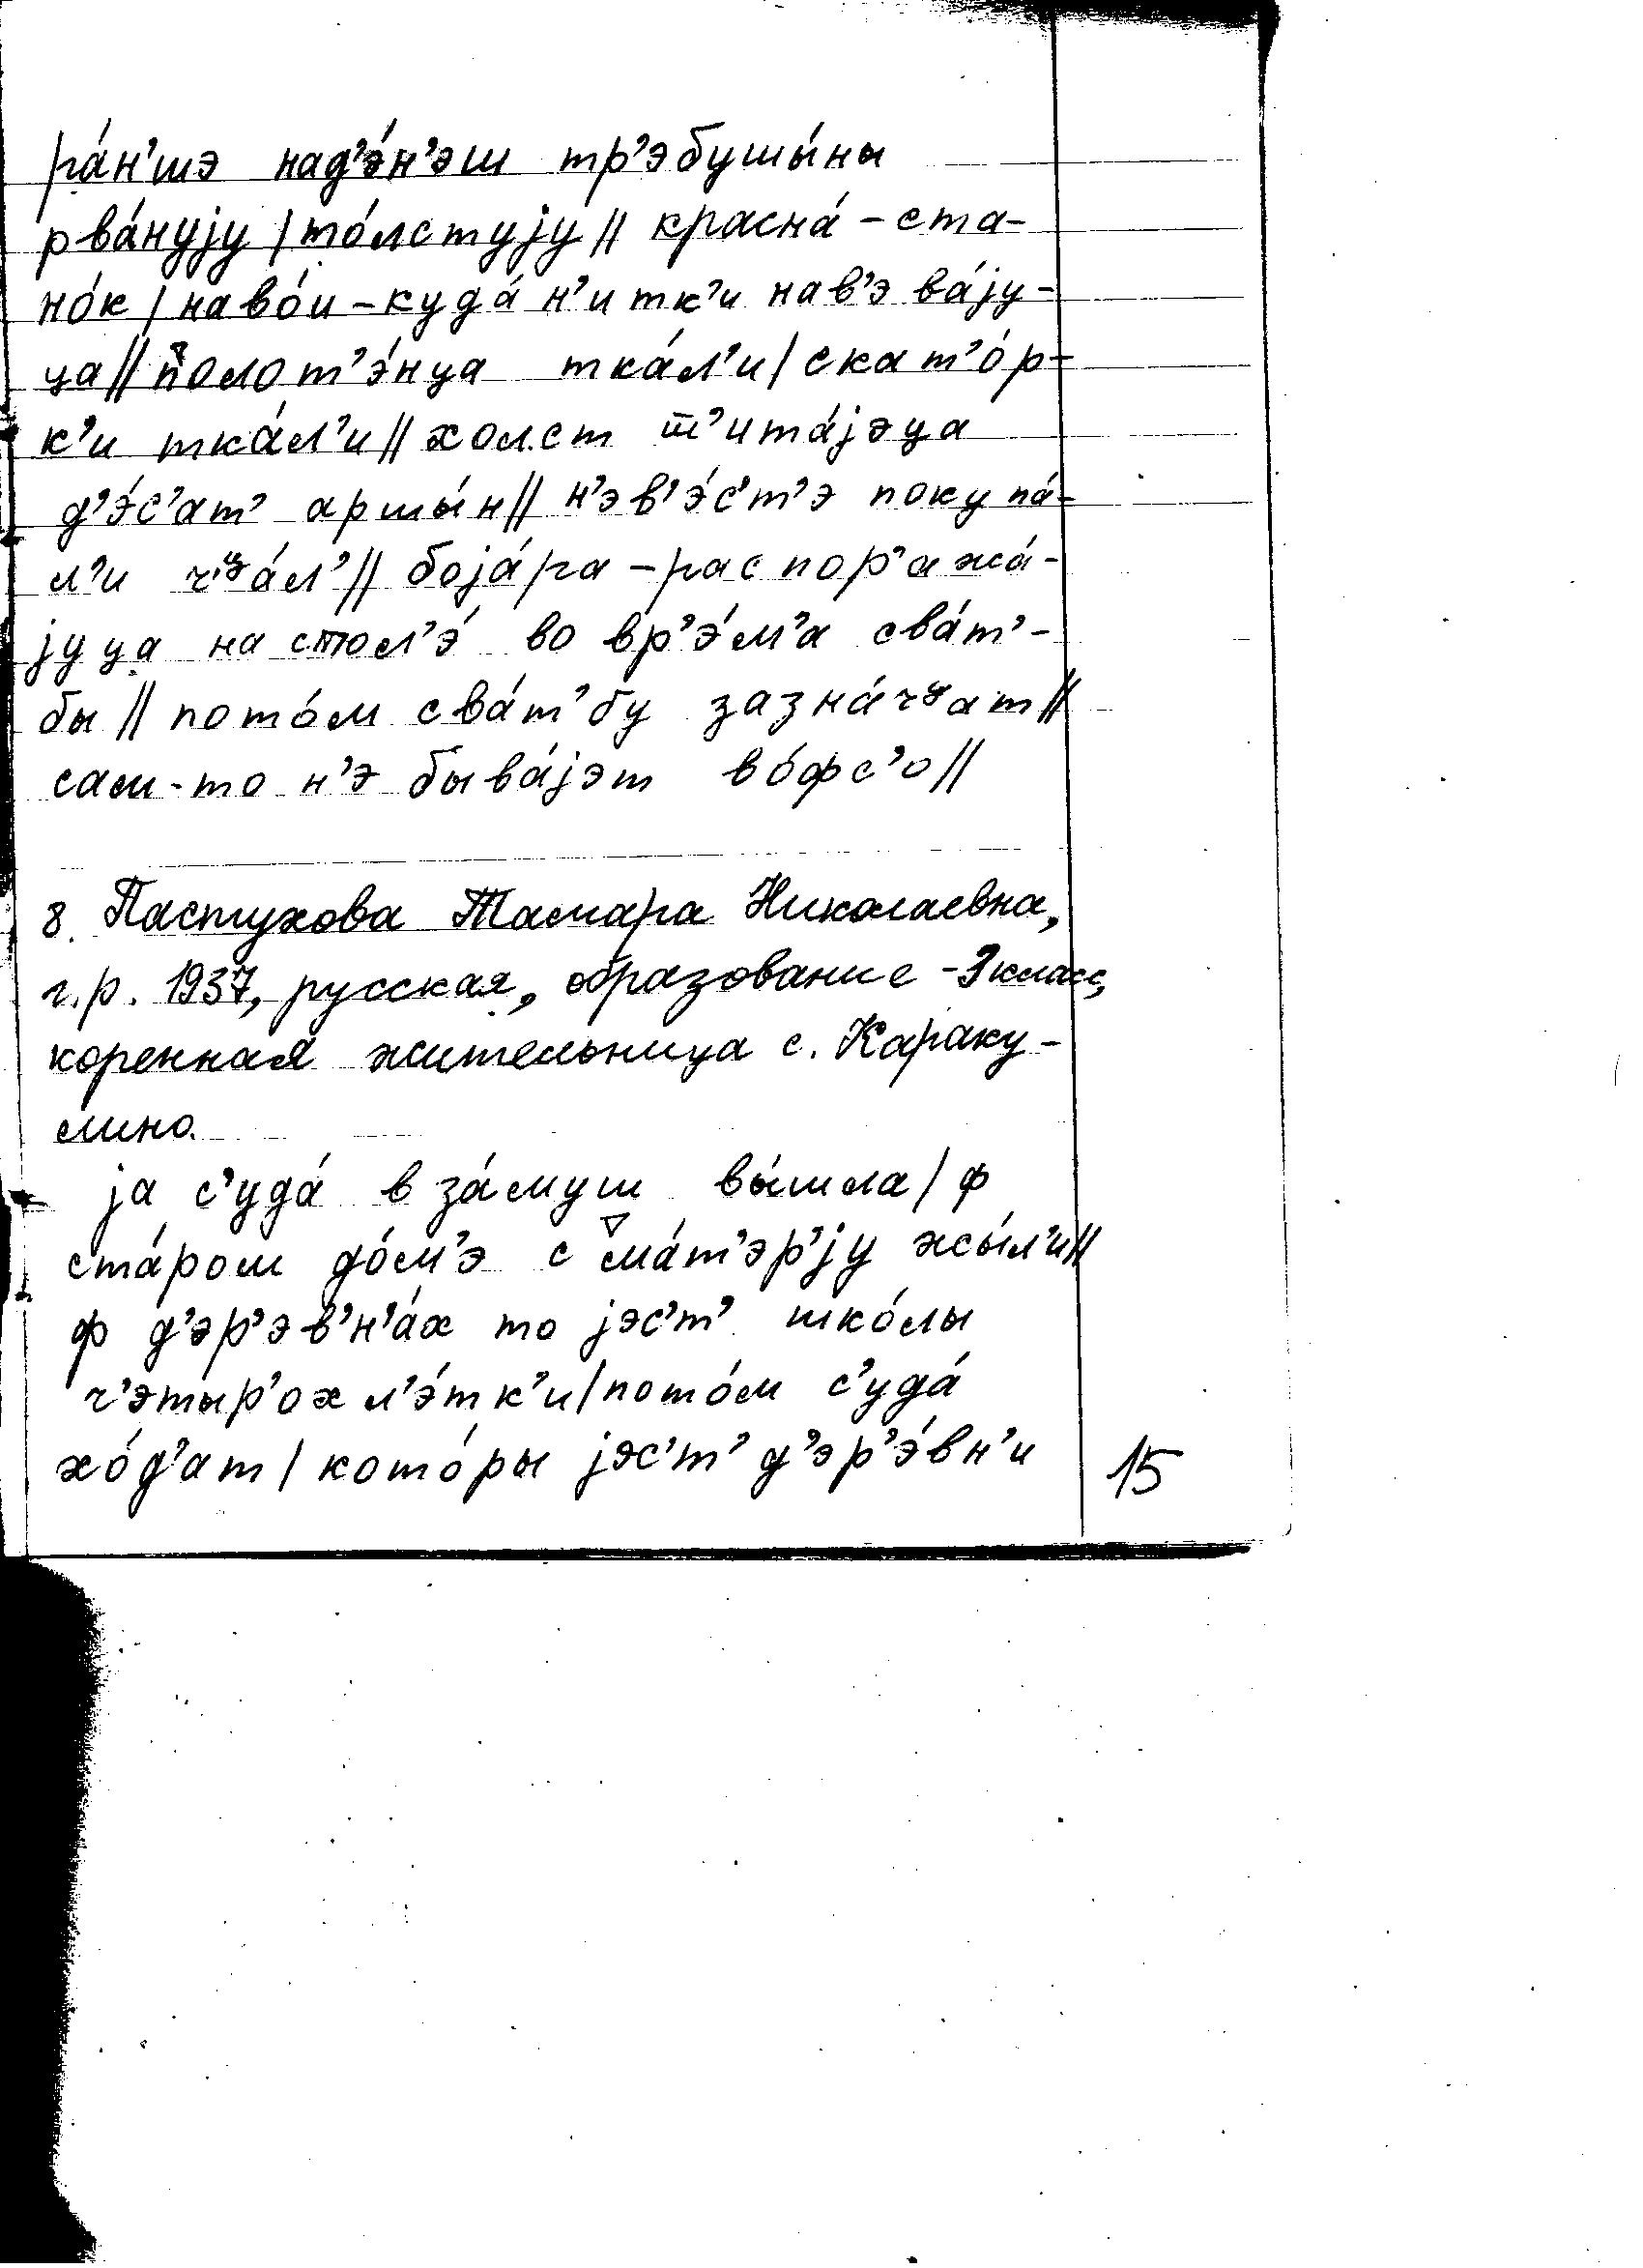 ра́н’шэ над’э́н’эш тр’эбушы́ны
рва́нуjу / то́лстуjу // красна́ – ста-
но́к / наво́и – куда́ н’итк’и нав’эва́jу-
ца // полот’э́нца тка́л’и / скат’о́р-
к’и тка́л’и // холст ш̅’ита́jэца
д’э́с’ат’ аршы́н // н’эв’э́с’т’э покупа́-
л’и чᶣа́л’ // боjа́ра – распор’ажа́-
jуца на стол’э́ во вр’э́м’а сва́т’-
бы // пото́м сва́т’бу зазна́чᶣат //
сам-то н’э быва́jэт во́фс’о //
8. Пастухова Тамара Николаевна,
г.р. 1937, русская, образование – 3 класс,
коренная жительница с. Караку-
лино.
jа с’уда́ в за́муш вы́шла / ф
ста́ром до́м’э с ма́т’эр’jу жы́л’и //
ф д’эр’эв’н’а́х то jэс’т’ шко́лы
ч’этыр’охл’э́тк’и / пото́м с’уда́
хо́д’ат / кото́ры jэс’т’ д’эр’э́вн’и
15